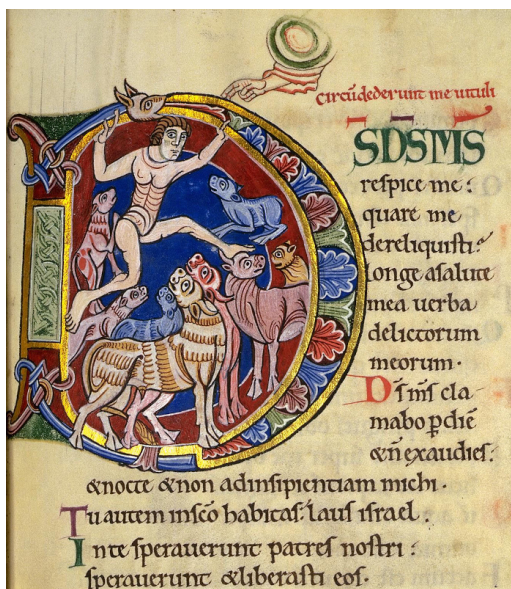 circūdederunt me uituli
S DS MS
respice me :
quare me
dereliquisti :
longe a salute
mea uerba
delictorum
meorum ·
Ds ms cla
mabo p diē
& ñ exaudies :
& nocte & non ad insipientiam michi ·
Tu autem in scō habitas : laus israel .
In te sperauerunt patres nostri :
sperauerunt & liberasti eos ·